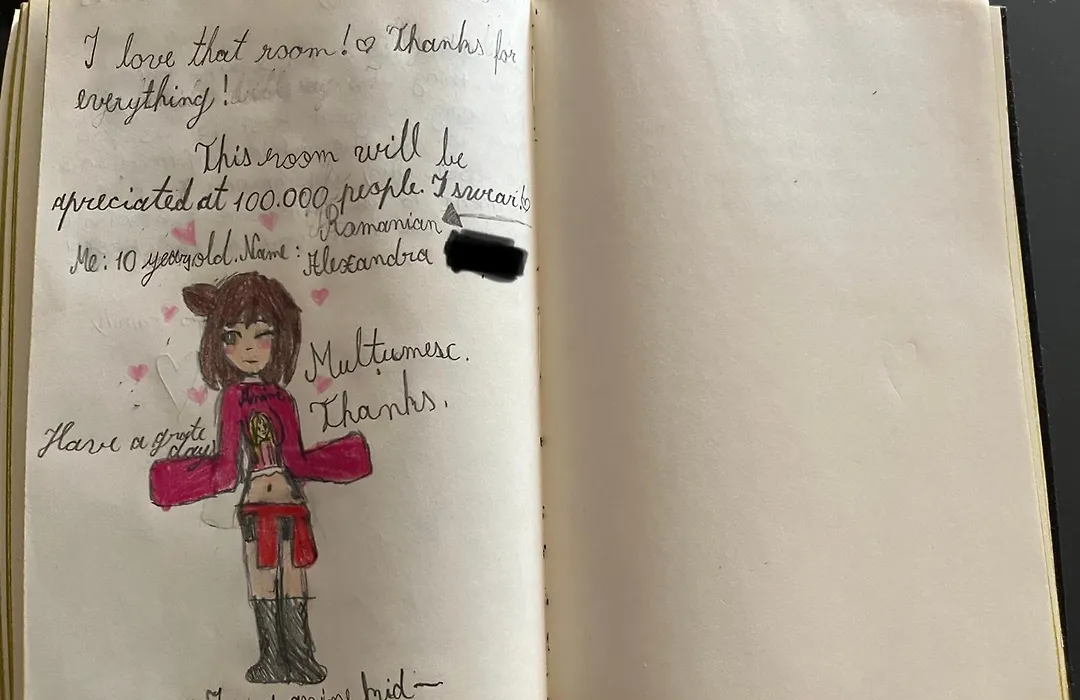 I love that room! Thanks for
everything!
This room will be
apreciated at 100.000 people. I swear!
Romanian
Me: 10 years old. Name: Alexandra
Multumesc.
Thanks.
Anime
Have a grate
day
anime kid